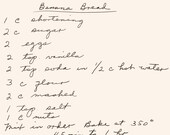 Banana Bread
1 c shortening
2 c sugar
2 eggs
2 tsp vanilla
2 tsp soda in 1/2 c hot water
3 c flour
2 c mashed
1 tsp salt
1 c nuts
Put in order Bake at 350°
45 min to 1 hr